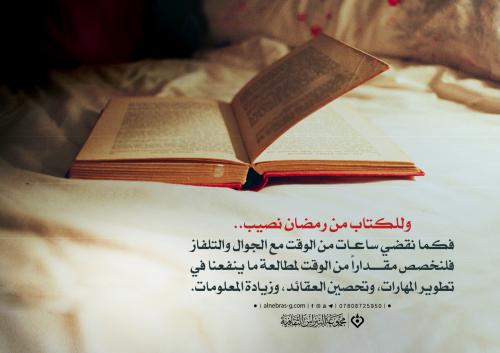 وللكتاب من رمضان نصيب..
فكما نقضي ساعات من الوقت مع الجوال والتلفاز
فلنخصص مقداراً من الوقت لمطالعة ما ينفعنا في
تطوير المهارات، وتحصين العقائد، وزيادة المعلومات.
alnebras-g.com | 07808725950
مجموعة النبراس الثقافية